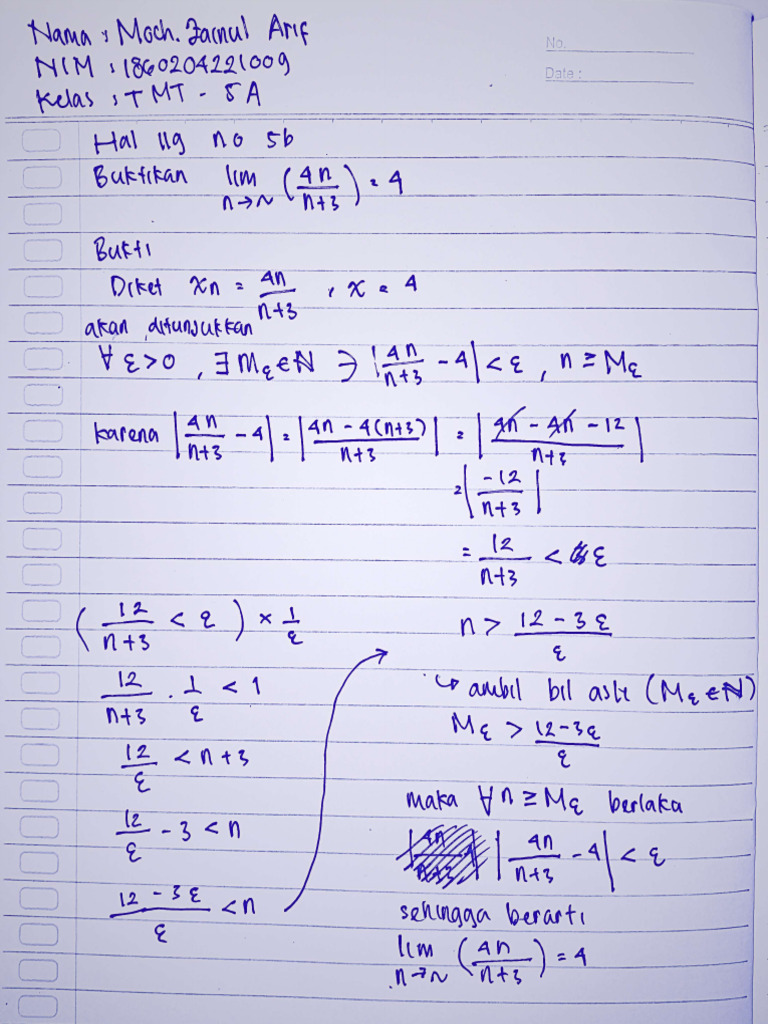 Nama : Moch. Zainul Arif
NIM : 1860204221009
Kelas : TMT - 5A
No.
Date :
Hal 119 no 5b
Buktikan lim n→∞ (4n/n+3) = 4
Bukti
Diket xn = 4n/n+3 , x = 4
akan ditunjukkan
∀ ε>0 , ∃ Mε ∈ N ∋ |4n/n+3 - 4| < ε , n ≥ Mε
karena |4n/n+3 - 4| = |4n - 4(n+3)/n+3| = |4n - 4n - 12/n+3|
= |-12/n+3|
= 12/n+3 < ε
(12/n+3 < ε) × 1/ε
12/n+3 . 1/ε < 1
12/ε < n+3
12/ε - 3 < n
12 - 3ε/ε < n
n > 12 - 3ε/ε
↳ ambil bil asli (Mε ∈ N)
Mε > 12-3ε/ε
maka ∀n ≥ Mε berlaku
|4n/n+3 - 4| < ε
sehingga berarti
lim n→∞ (4n/n+3) = 4